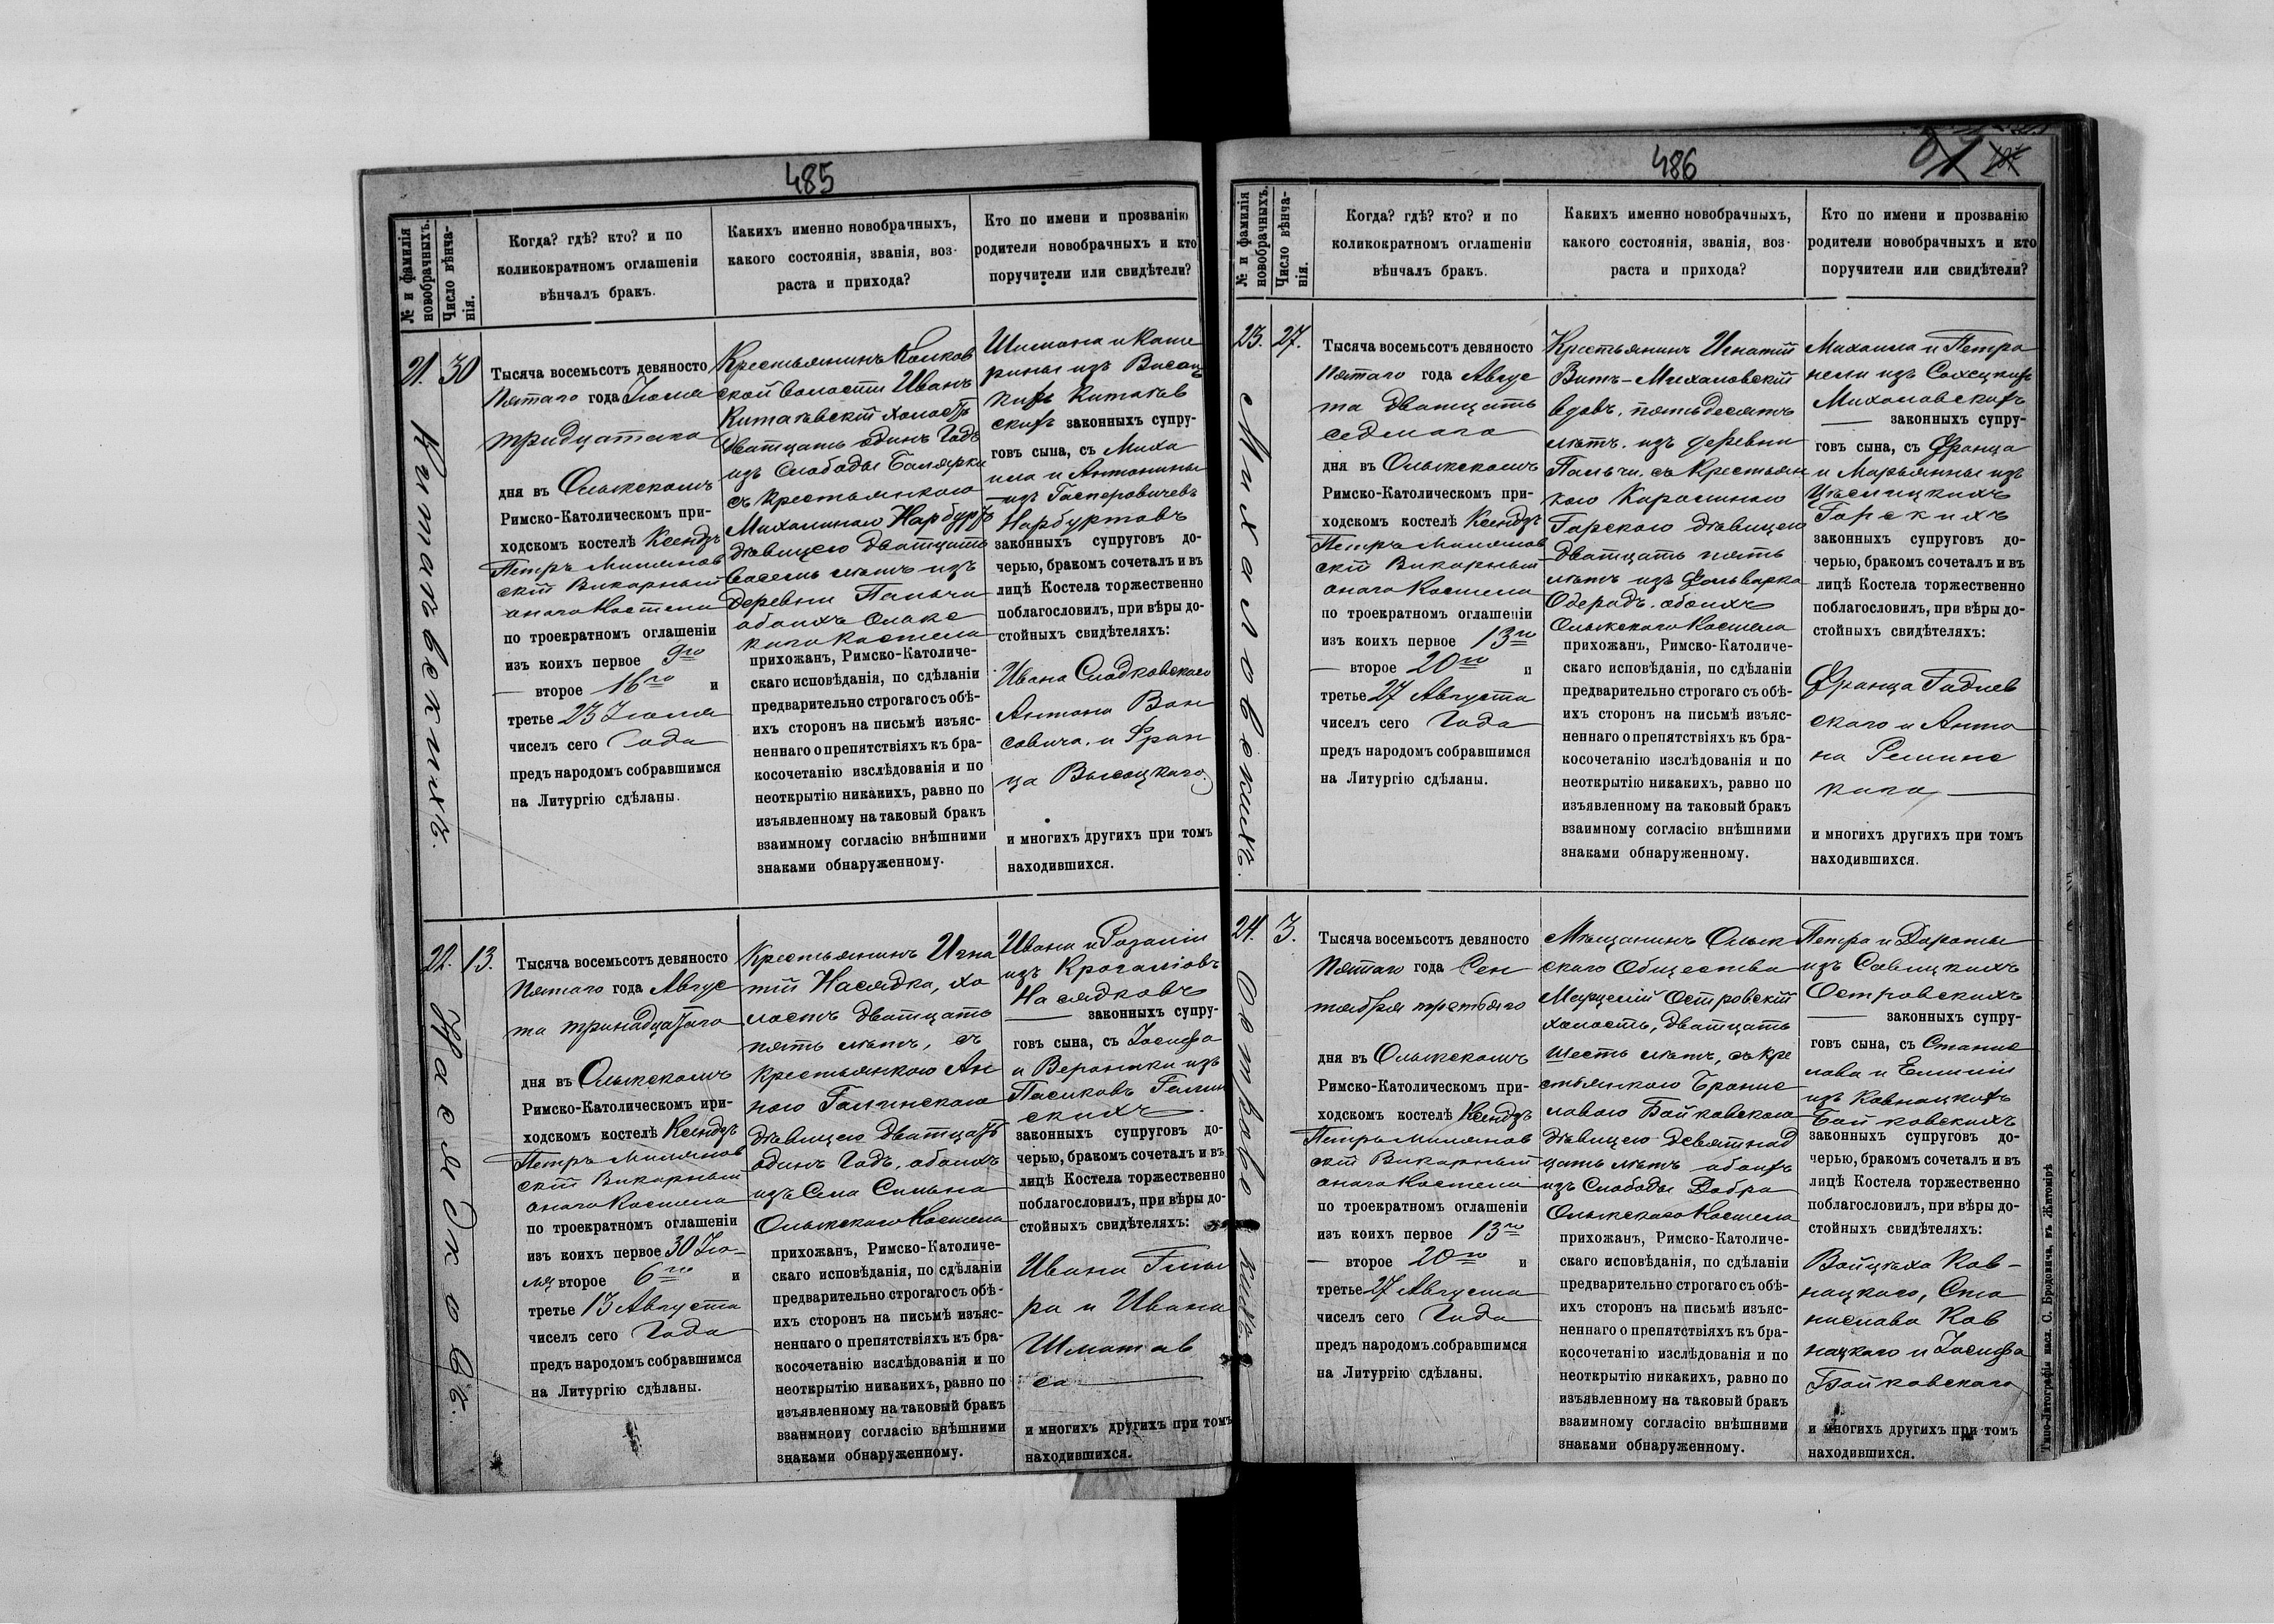 485
№ и фамилія
новобрачныхъ.
Число вѣнча-
нія.
Когда? гдѣ? кто? и по
коликократномъ оглашеніи
вѣнчалъ бракъ.
Каких​ъ именно новобрачныхъ,
какого состоянія, званія, воз-
раста и прихода?
Кто по имени и прозванію
родители новобрачныхъ и кто
поручители или свидѣтели?
21.
30
Тысяча восемьсотъ девяносто
Пятаго года Іюля
тридцатаго
дня въ Олыкскомъ
Римско-Католическомъ при-
ходскомъ костелѣ Ксендзъ
Петръ
скій Викарный
онаго Костела
по троекратномъ оглашеніи
изъ коихъ первое 9го
второе 16го и
третье 23 Іюля
чиселъ сего Года
предъ народомъ собравшимся
на Литургію сдѣланы.
Крестьянинъ Колков
ской Волости Иванъ
холостъ
Дватцать одинъ Годъ
изъ Слободы
съ Крестьянкою
Михалиною Нарбуртъ
дѣвицею Дватцать
восемь лѣтъ изъ
деревни Пальча
обоихъ Олыкс
каго Костела
прихожанъ, Римско-Католиче-
скаго исповѣданія, по сдѣланіи
предварительно строгаго съ обѣ-
ихъ сторонъ на письмѣ изъяс-
неннаго о препятствіяхъ къ бра-
косочетанію изслѣдованія и по
неоткрытію никакихъ, равно по
изъявленному на таковый бракъ
взаимному согласію внѣшними
знаками обнаруженному.
Шимона и Кате
рины изъ Висоц
кихъ
скихъ законныхъ супру-
говъ сына, съ Миха
ила и Антонины
изъ Гасперовичевъ
Нарбуртовъ
законныхъ супруговъ до-
черью, бракомъ сочеталъ и въ
лицѣ Костела торжественно
поблагословилъ, при вѣры до-
стойныхъ свидѣтеляхъ:
Ивана Сладковскаго
Антона Вон
совича и Фран
ца Высоцкаго
и многихъ другихъ при томъ
находившихся.
22.
13.
Насядковъ.
Тысяча восемьсотъ девяносто
Пятаго года Авгус
та тринадцатаго
дня въ Олыкскомъ
Римско-Католическомъ при-
ходскомъ костелѣ Ксендзъ
Петръ
скій Викарный
онаго Костела
по троекратномъ оглашеніи
изъ коихъ первое 30 Ію-
ля второе 6го и
третье 13 Августа
чиселъ сего Года
предъ народомъ собравшимся
на Литургію сдѣланы.
Крестьянинъ Игна
тій Насядка, хо
лостъ дватцать
пять лѣтъ, съ
Крестьянкою Ан
ною
дѣвицею дватцать
одинъ Годъ, обоихъ
изъ Села Сильна
Олыкскаго Костела
прихожанъ, Римско-Католиче-
скаго исповѣданія, по сдѣланіи
предварительно строгаго съ обѣ-
ихъ сторонъ на письмѣ изъяс-
неннаго о препятствіяхъ къ бра-
косочетанію изслѣдованія и по
неоткрытію никакихъ, равно по
изъявленному на таковый бракъ
взаимному согласію внѣшними
знаками обнаруженному.
Ивана и Розаліи
изъ
Насядковъ
законныхъ супру-
говъ сына, съ Іосифа
и Вероники изъ
скихъ
законныхъ супруговъ до-
черью, бракомъ сочеталъ и въ
лицѣ Костела торжественно
поблагословилъ, при вѣры до-
стойныхъ свидѣтеляхъ:
Ивана
ра и Ивана
и многихъ другихъ при томъ
находившихся.
486
№ и фамилія
новобрачныхъ.
Число вѣнча-
нія.
Когда? гдѣ? кто? и по
коликократномъ оглашеніи
вѣнчалъ бракъ.
Какихъ именно новобрачныхъ,
какого состоянія, званія, воз-
раста и прихода?
Кто по имени и прозванію
родители новобрачныхъ и кто
поручители или свидѣтели?
23.
27.
Михаловскихъ.
Тысяча восемьсотъ девяносто
Пятаго года Авгус
та дватцать
седмаго
дня въ Олыкскомъ
Римско-Католическомъ при-
ходскомъ костелѣ Ксендзъ
Петръ
скій Викарный
онаго Костела
по троекратномъ оглашеніи
изъ коихъ первое 13го
второе 20го и
третье 27 Августа
чиселъ сего Года
предъ народомъ собравшимся
на Литургію сдѣланы.
Крестьянинъ Игнатій
Витъ-Михаловскій
вдовъ, пятьдесятъ
лѣтъ, изъ деревни
Пальчи, съ Крестьян
кою Каролиною
Горскою дѣвицею
дватцать пять
лѣтъ изъ Фольварка
Одерадъ, обоихъ
Олыкскаго Костела
прихожанъ, Римско-Католиче-
скаго исповѣданія, по сдѣланіи
предварительно строгаго съ обѣ-
ихъ сторонъ на письмѣ изъяс-
неннаго о препятствіяхъ къ бра-
косочетанію изслѣдованія и по
неоткрытію никакихъ, равно по
изъявленному на таковый бракъ
взаимному согласію внѣшними
знаками обнаруженному.
Михаила и Петро
нели изъ
Михаловскихъ
законныхъ супру-
говъ сына, съ Франца
и Марьянны изъ
Горскихъ
законныхъ супруговъ до-
черью, бракомъ сочеталъ и въ
лицѣ Костела торжественно
поблагословилъ, при вѣры до-
стойныхъ свидѣтеляхъ:
Франца
скаго и Анто
на
каго
и многихъ другихъ при томъ
находившихся.
24.
3.
Островскихъ
Тысяча восемьсотъ девяносто
Пятаго года Сен
тября третьяго
дня въ Олыкскомъ
Римско-Католическомъ при-
ходскомъ костелѣ Ксендзъ
Петръ
скій Викарный
онаго Костела
по троекратномъ оглашеніи
изъ коихъ первое 13го
второе 20го и
третье 27 Августа
чиселъ сего Года
предъ народомъ собравшимся
на Литургію сдѣланы.
Мѣщанинъ Олык
скаго Общества
Марцелій Островскій
холостъ, дватцать
шесть лѣтъ, съ Кре
стьянкою Бронис
лавою Байковскою
дѣвицею девятнад
цать лѣтъ обоихъ
изъ Слободы Добра
Олыкскаго Костела
прихожанъ, Римско-Католиче-
скаго исповѣданія, по сдѣланіи
предварительно строгаго съ обѣ-
ихъ сторонъ на письмѣ изъяс-
неннаго о препятствіяхъ къ бра-
косочетанію изслѣдованія и по
неоткрытію никакихъ, равно по
изъявленному на таковый бракъ
взаимному согласію внѣшними
знаками обнаруженному.
Петра и Дороты
изъ Савицкихъ
Островскихъ
законныхъ супру-
говъ сына, съ Станис
лава и Емиліи
изъ Ковнацкихъ
Байковскихъ
законныхъ супруговъ до-
черью, бракомъ сочеталъ и въ
лицѣ Костела торжественно
поблагословилъ, при вѣры до-
стойныхъ свидѣтеляхъ:
Войцѣха Ков-
нацкаго, Ста
нислава Ков
нацкаго и Іосифа
Байковскаго
и многихъ другихъ при томъ
находившихся.
Типо-Литографія насл. С. Бродовича, въ Житомірѣ